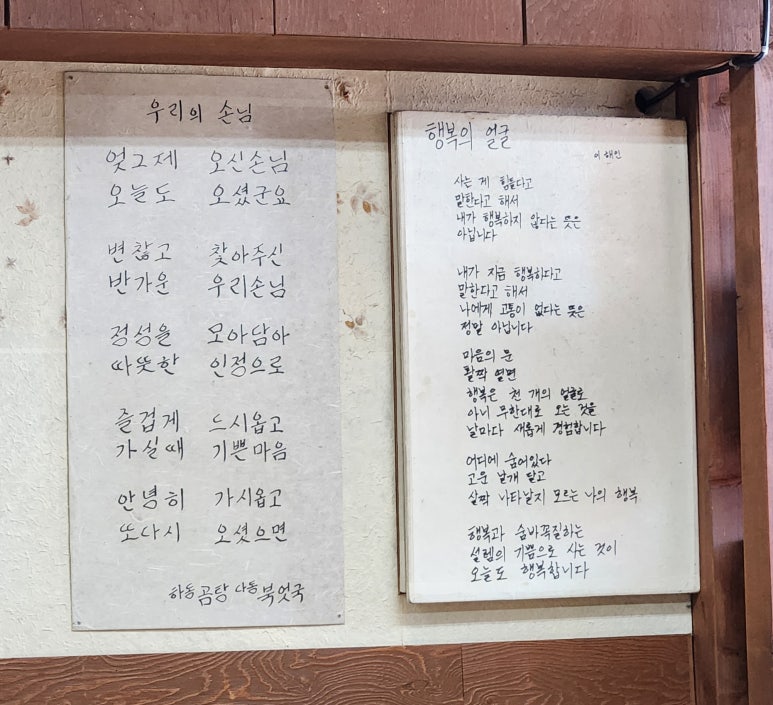 우리의 손님
엊그제 오신손님
오늘도 오셨군요
변찮고 찾아주신
반가운 우리손님
정성을 모아담아
따뜻한 인정으로
즐겁게 드시옵고
가실때 기쁜마음
안녕히 가시옵고
또다시 오셨으면
하동곰탕 다동북엇국
행복의 얼굴
이해인
사는 게 힘들다고
말한다고 해서
내가 행복하지 않다는 뜻은
아닙니다
내가 지금 행복하다고
말한다고 해서
나에게 고통이 없다는 뜻은
정말 아닙니다
마음의 문
활짝 열면
행복은 천 개의 얼굴로
아니 무한대로 오는 것을
날마다 새롭게 경험합니다
어디에 숨어있다
고운 날개 달고
살짝 나타날지 모르는 나의 행복
행복과 숨바꼭질하는
설렘의 기쁨으로 사는 것이
오늘도 행복합니다